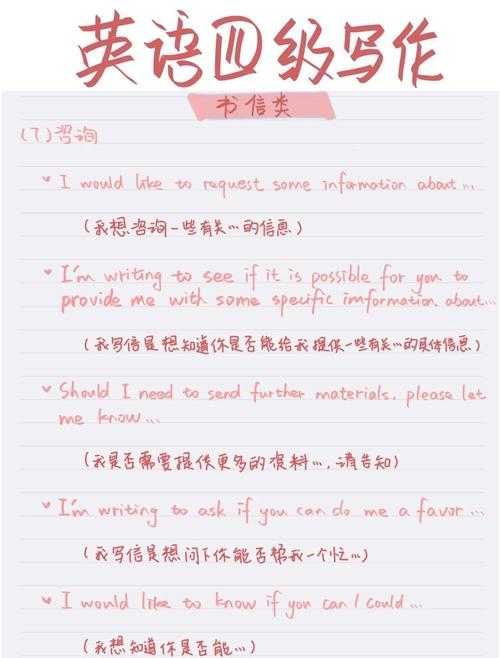 英语四级写作
书信类
(7)咨询
I would like to request some information about...
(我想咨询一些有关...的信息)
I'm writing to see if it is possible for you to
provide me with some specific imformation about...
(我写信是想知道你是否能给我提供一些有关...的具体信息)
Should I need to send further materials, please let
me know...
(我是否需要提供更多的资料...,请告知)
I'm writing to ask if you can do me a favor...
(我写信是想问下你能否帮我一个忙...)
I would like to know if you can / could...
(我想知道你是否能...)